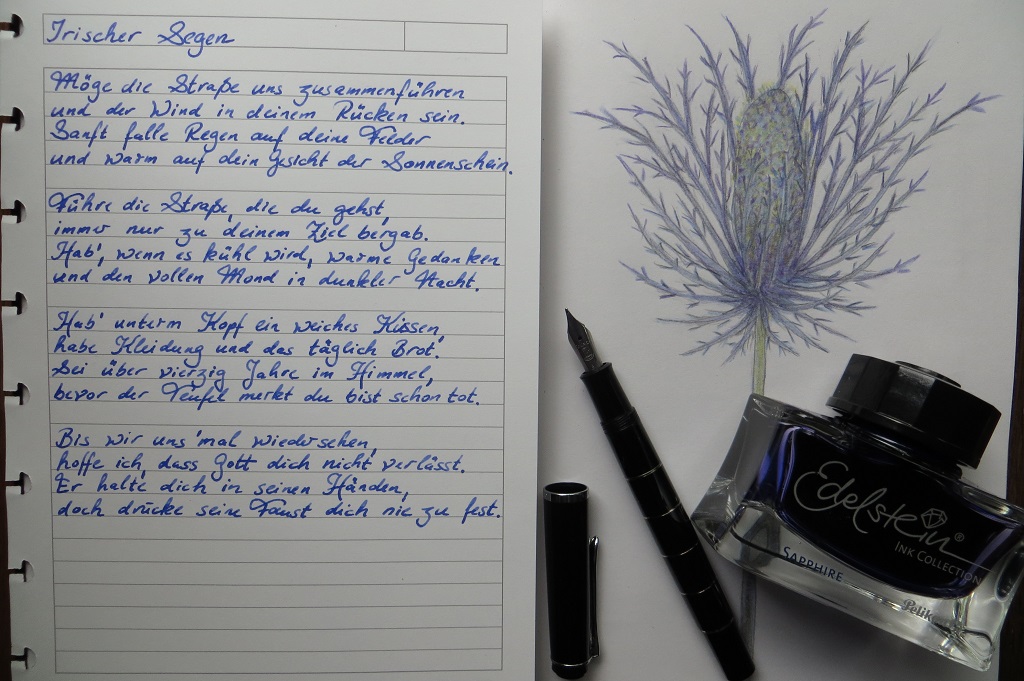 Irischer Segen
Möge die Straße uns zusammenführen
und der Wind in deinem Rücken sein.
Sanft falle Regen auf deine Felder
und warm auf dein Gesicht der Sonnenschein.
Führe die Straße, die du gehst,
immer nur zu deinem Ziel bergab.
Hab', wenn es kühl wird, warme Gedanken
und den vollen Mond in dunkler Nacht.
Hab' unterm Kopf ein weiches Kissen,
habe Kleidung und das täglich Brot.
Sei über vierzig Jahre im Himmel,
bevor der Teufel merkt du bist schon tot.
Bis wir uns 'mal wiedersehen,
hoffe ich, dass Gott dich nicht verlässt.
Er halte dich in seinen Händen,
doch drücke seine Faust dich nie zu fest.
Edelstein®
INK COLLECTION
SAPPHIRE
Pelik